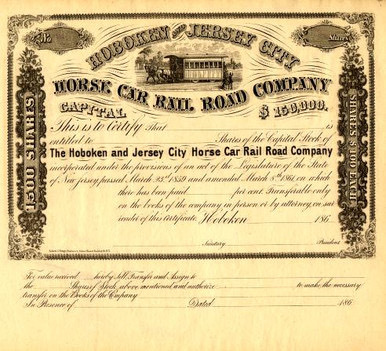 No. Shares
HOBOKEN AND JERSEY CITY
HORSE CAR RAIL ROAD COMPANY
CAPITAL $ 150,000.
1500 SHARES
SHARES $100 EACH
This is to Certify That is
entitled to Shares of the Capital Stock of
The Hoboken and Jersey City Horse Car Rail Road Company
incorporated under the provisions of an act of the Legislature of the State
of New jersey passed March 23d 1859 and amended March 8th 1861, on which
there has been paid per cent Transferable only
on the books of the company in person or by attorney on sur
render of this certificate Hoboken 186
Secretary President
For value received hereby Sell Transfer and Assign to
the Shares of Stock above mentioned and authorize to make the necessary
transfer on the Books of the Company
In Presence of Dated 186